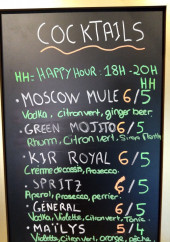 COCKTAILS
HH= HAPPY HOUR : 18H-20H
HH
• MOSCOW MULE 6/5
Vodka, citron vert, ginger beer.
• GREEN MOJITO 6/5
Rhum, Citron vert,
• KIR ROYAL 6/5
Crème de cassis, Prosecco.
• SPRITZ 6/5
Aperol, prosecco, perrier.
• GÉNÉRAL 6/5
Vodka, Violette, citron vert, Tonic.
• MAÏLYS 5/4
Violette, citron vert, orange, pêche